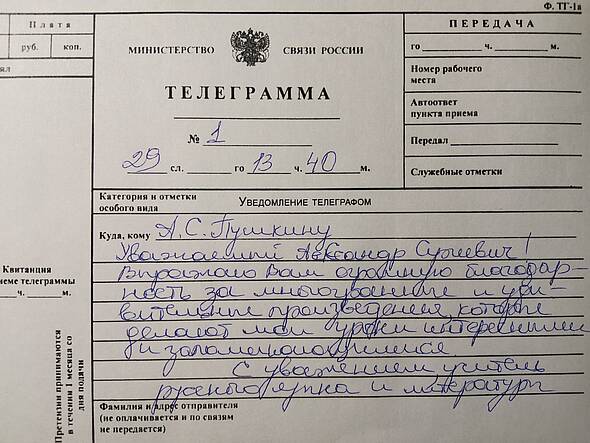 Ф. ТГ-1а
Плата
руб. коп.
МИНИСТЕРСТВО СВЯЗИ РОССИИ
ТЕЛЕГРАММА
№ 1
29 сл. го 13 ч. 40 м.
ПЕРЕДАЧА
го ч. м.
Номер рабочего
места
Автоответ
пункта приема
Передал
Служебные отметки
Категория и отметки
особого вида
УВЕДОМЛЕНИЕ ТЕЛЕГРАФОМ
Куда, кому А.С. Пушкину
Уважаемый Александр Сергеевич!
Выражаю Вам огромную благодар-
ность за многогранные и уди-
вительные произведения, которые
делают мои уроки интересными
и запоминающимися.
С уважением учитель
русского языка и литературы
Квитанция
еме телеграммы
ч. м.
Претензии принимаются
в течении 1 месяца со
дня подачи
Фамилия и адрес отправителя
(не оплачивается и по связям
не передается)